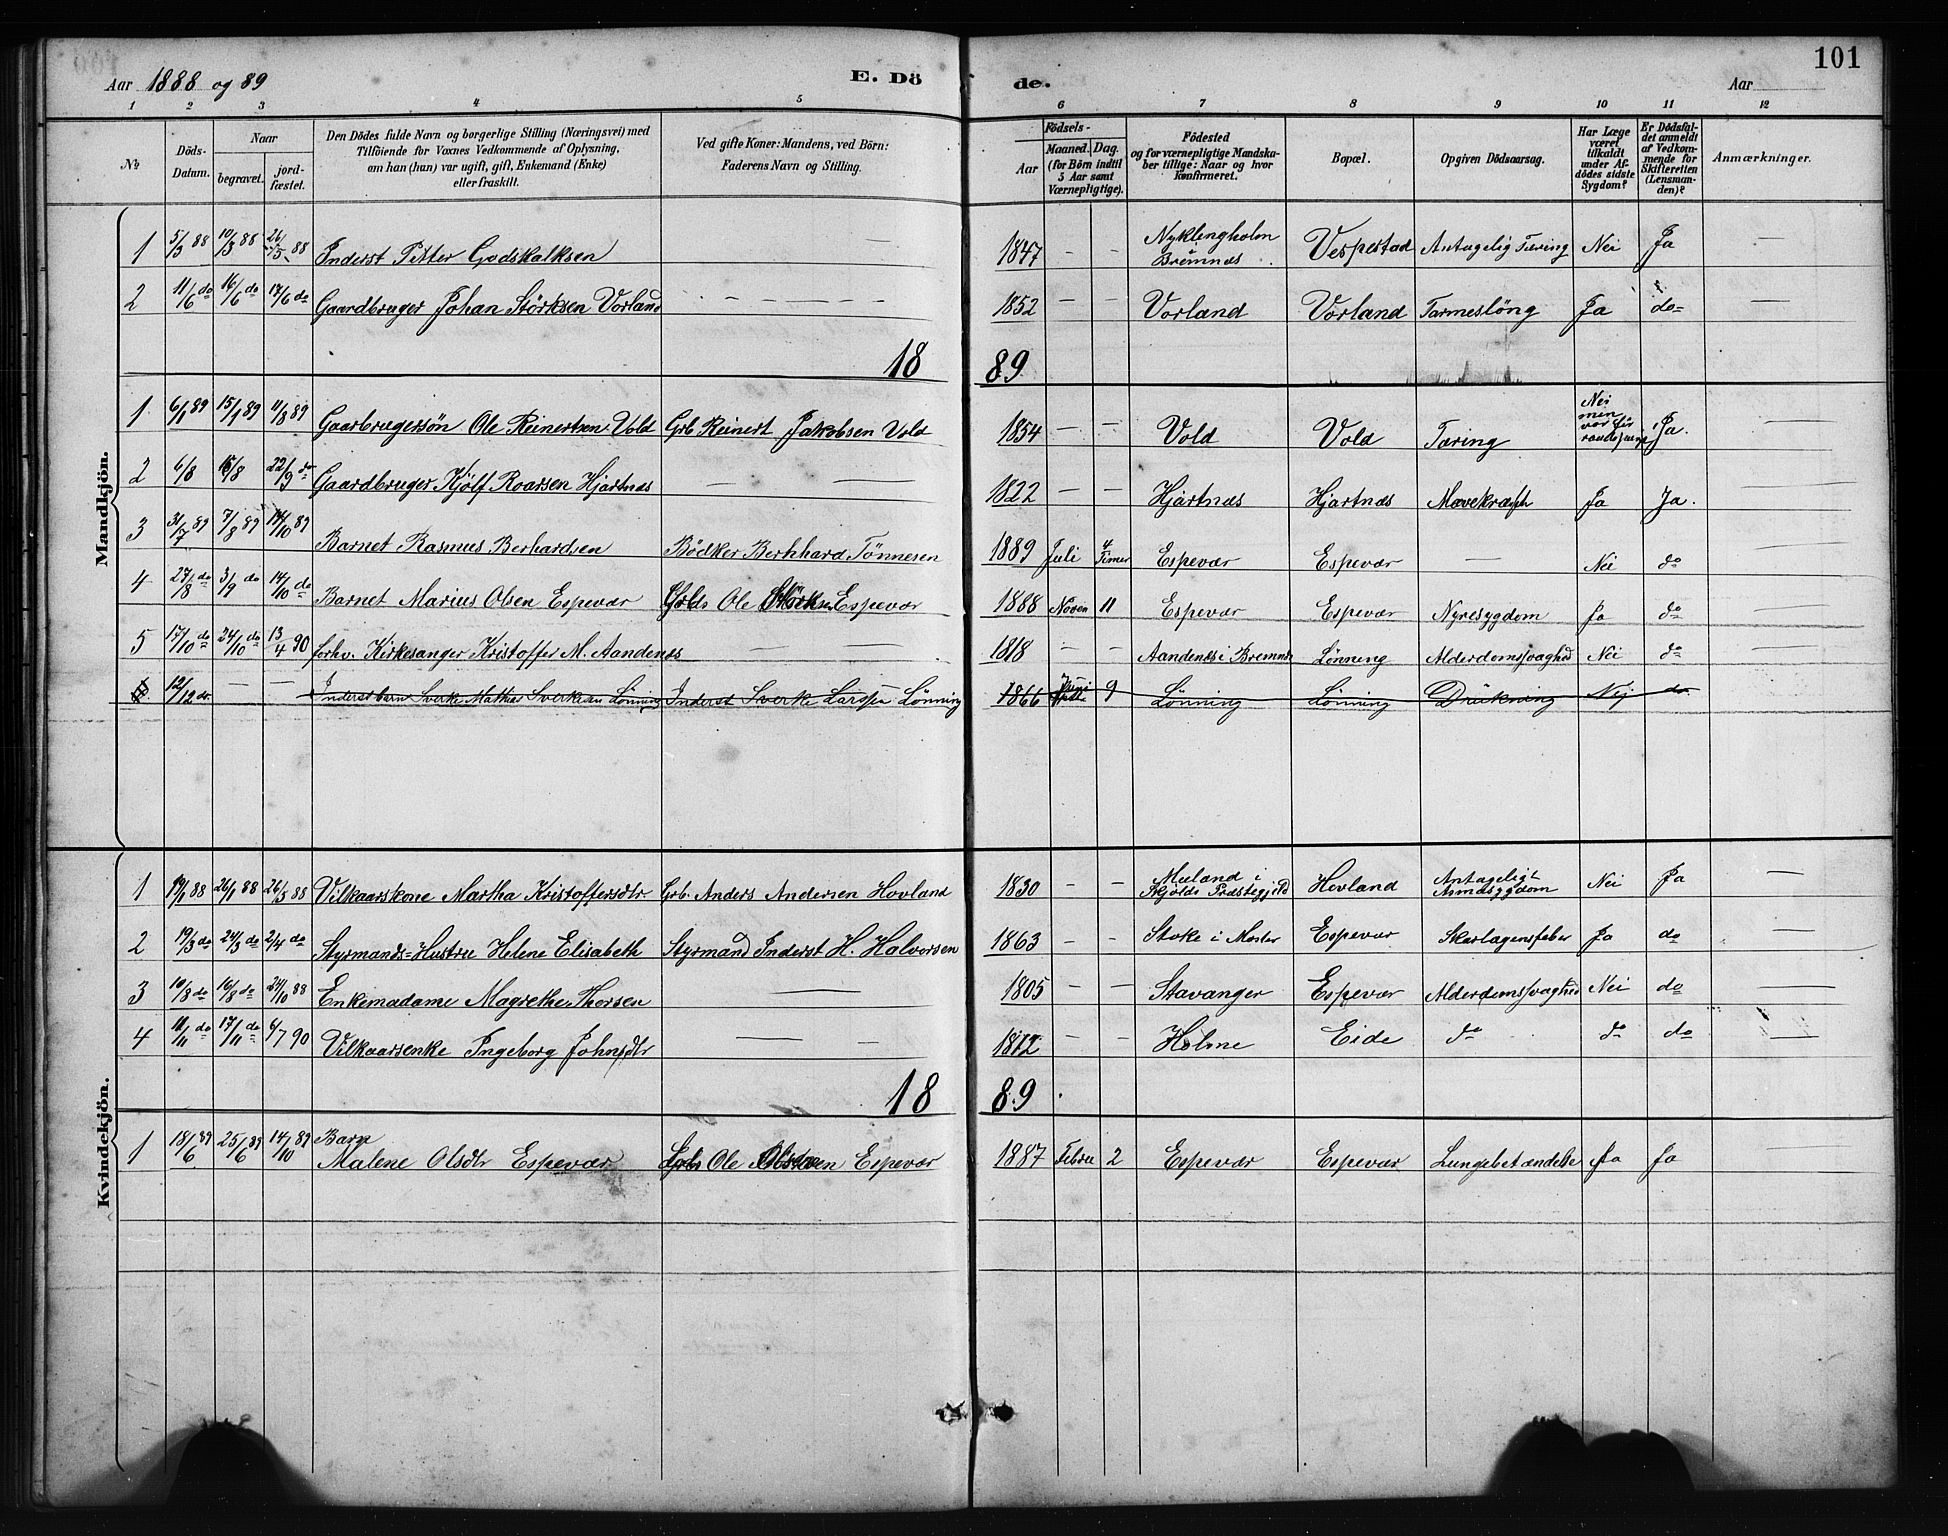 Aar 1888 og 89
E. Dö
de.
Aar
101
1 2 3 4 5 6 7 8 9 10 11 12
№
Döds-Datum.
Naar
begravet.
jordfæstet.
Den Dödes fulde Navn og borgerlige Stilling (Næringsvei) med
Tilföiende for Voxnes Vedkommende af Oplysning,
om han (han) var ugift, gift, Enkemand (Enke)
eller fraskilt.
Ved gifte Koner: Mandens, ved Börn:
Faderens Navn og Stilling.
Födsels-
Aar
Maaned. Dag.
(for Börn indtil
5 Aar samt
Værnepligtige).
Födested
og for værnepligtige Mandska-
ber tillige: Naar og hvor
Konfirmeret.
Bopæl.
Opgiven Dödsaarsag.
Har Læge
været
tilkaldt
under Af-
dödes sidste
Sygdom?
Er Dödsfal-
det anmeldt
af Vedkom-
mende for
Skifteretten
(Lensman-
den)?
Anmærkninger.
Mandkjön.
1 5/3 88 10/3 88 26/5 88 Inderst Petter Godskalksen — 1847 - - Nyklengholm Bremnæs Vespestad Antagelig Tæring Nei Ja —
2 11/6 do 16/6 do 17/6 do Gaardbruger Johan Störksen Vorland - - - - - 1852 - - Vorland Vorland Tarmeslöng Ja do —
1889
1 6/1 89 15/1 89 11/8 89 Gaarbrugersön Ole Reinertsen Vold Grb Reinert Jakobsen Vold 1854 - - Vold Vold Tæring Nei men var Ja. —
2 6/8 /8 22/9 do Gaardbruger Kjölf Roarsen Hjartnæs — — 1822 — — Hjartnæs Hjartnæs Mavekræft Ja Ja. —
3 31/7 89 7/8 89 14/10 89 Barnet Rasmus Berhardsen Bödker Berhhard Tönnesen 1889 Juli 4 Timer Espevær Espevær — Nei do —
4 27/8 do 3/9 do 14/10 do Barnet Marius Olsen Espevær Ole Espevær 1888 Novem 11 Espevær Espevær Nyresygdom Ja do —
5 17/10 do 24/10 do 13/4 90 forhv. Kirkesanger Kristoffer M. Aandenæs — — 1818 - - Aandenæs i Bremnæs Lönning Alderdomssvaghed Nei do —
12/12 do. — — Inderst barn Sverke Mathias Sverkesen Lönning Inderst Sverke Larssen Lönning 1866 9 Lönning Lönning Drukning Nej do
Kvindekjön.
1 19/1 88 26/1 88 26/5 88 Vilkaarskone Martha Kristoffersdtr. Grb. Anders Andersen Hovland 1830 - - Mæland i Skjolds Præstegjeld Hovland Antageligt Nei Ja —
2 19/3 do 24/3 do 2/4 do Styrmands-Hustru Helene Elisabeth Styrmand Inderst H. Halvorsen 1863 - - Stoke i Moster Espevær Skarlagensfeber Ja do —
3 10/8 do 16/8 do 24/10 88 Enkemadame Magrethe Thorsen — 1805 - - Stavanger Espevær Alderdomssvaghed Nei do —
4 11/11 do 17/11 do 6/7 90 Vilkaarsenke Ingeborg Johnsdtr — — 1812 - - Holme Eide do do do —
1889
1 18/6 89 25/6 89 14/10 89 Barn
Malene Olsdtr Espevær Ole Espevær 1887 Febru 2 Espevær Espevær Lungebetændelse Ja Ja —